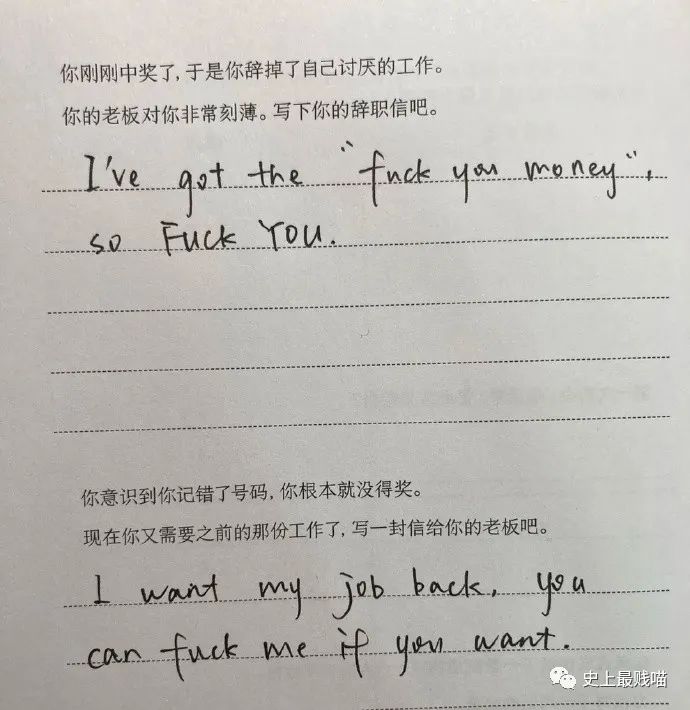 你刚刚中奖了，于是你辞掉了自己讨厌的工作。
你的老板对你非常刻薄。写下你的辞职信吧。
I've got the "fuck you money",
so Fuck YOU.
你意识到你记错了号码，你根本就没得奖。
现在你又需要之前的那份工作了，写一封信给你的老板吧。
I want my job back, you
can fuck me if you want.
史上最贱喵